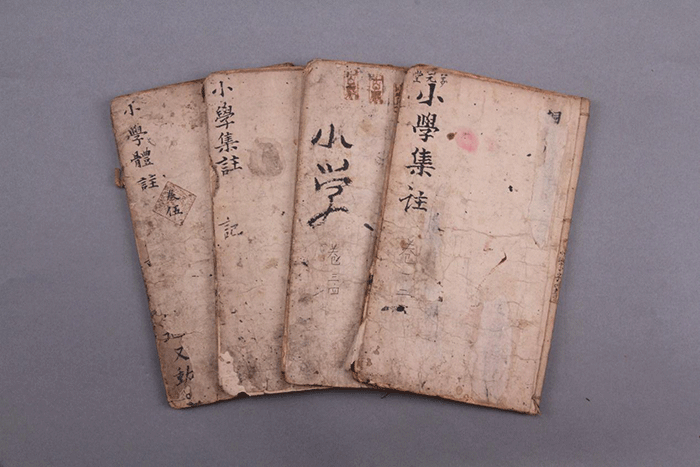 小學體註
卷伍
又動
小學集註
記
小学
卷三四
小學集註
卷一二